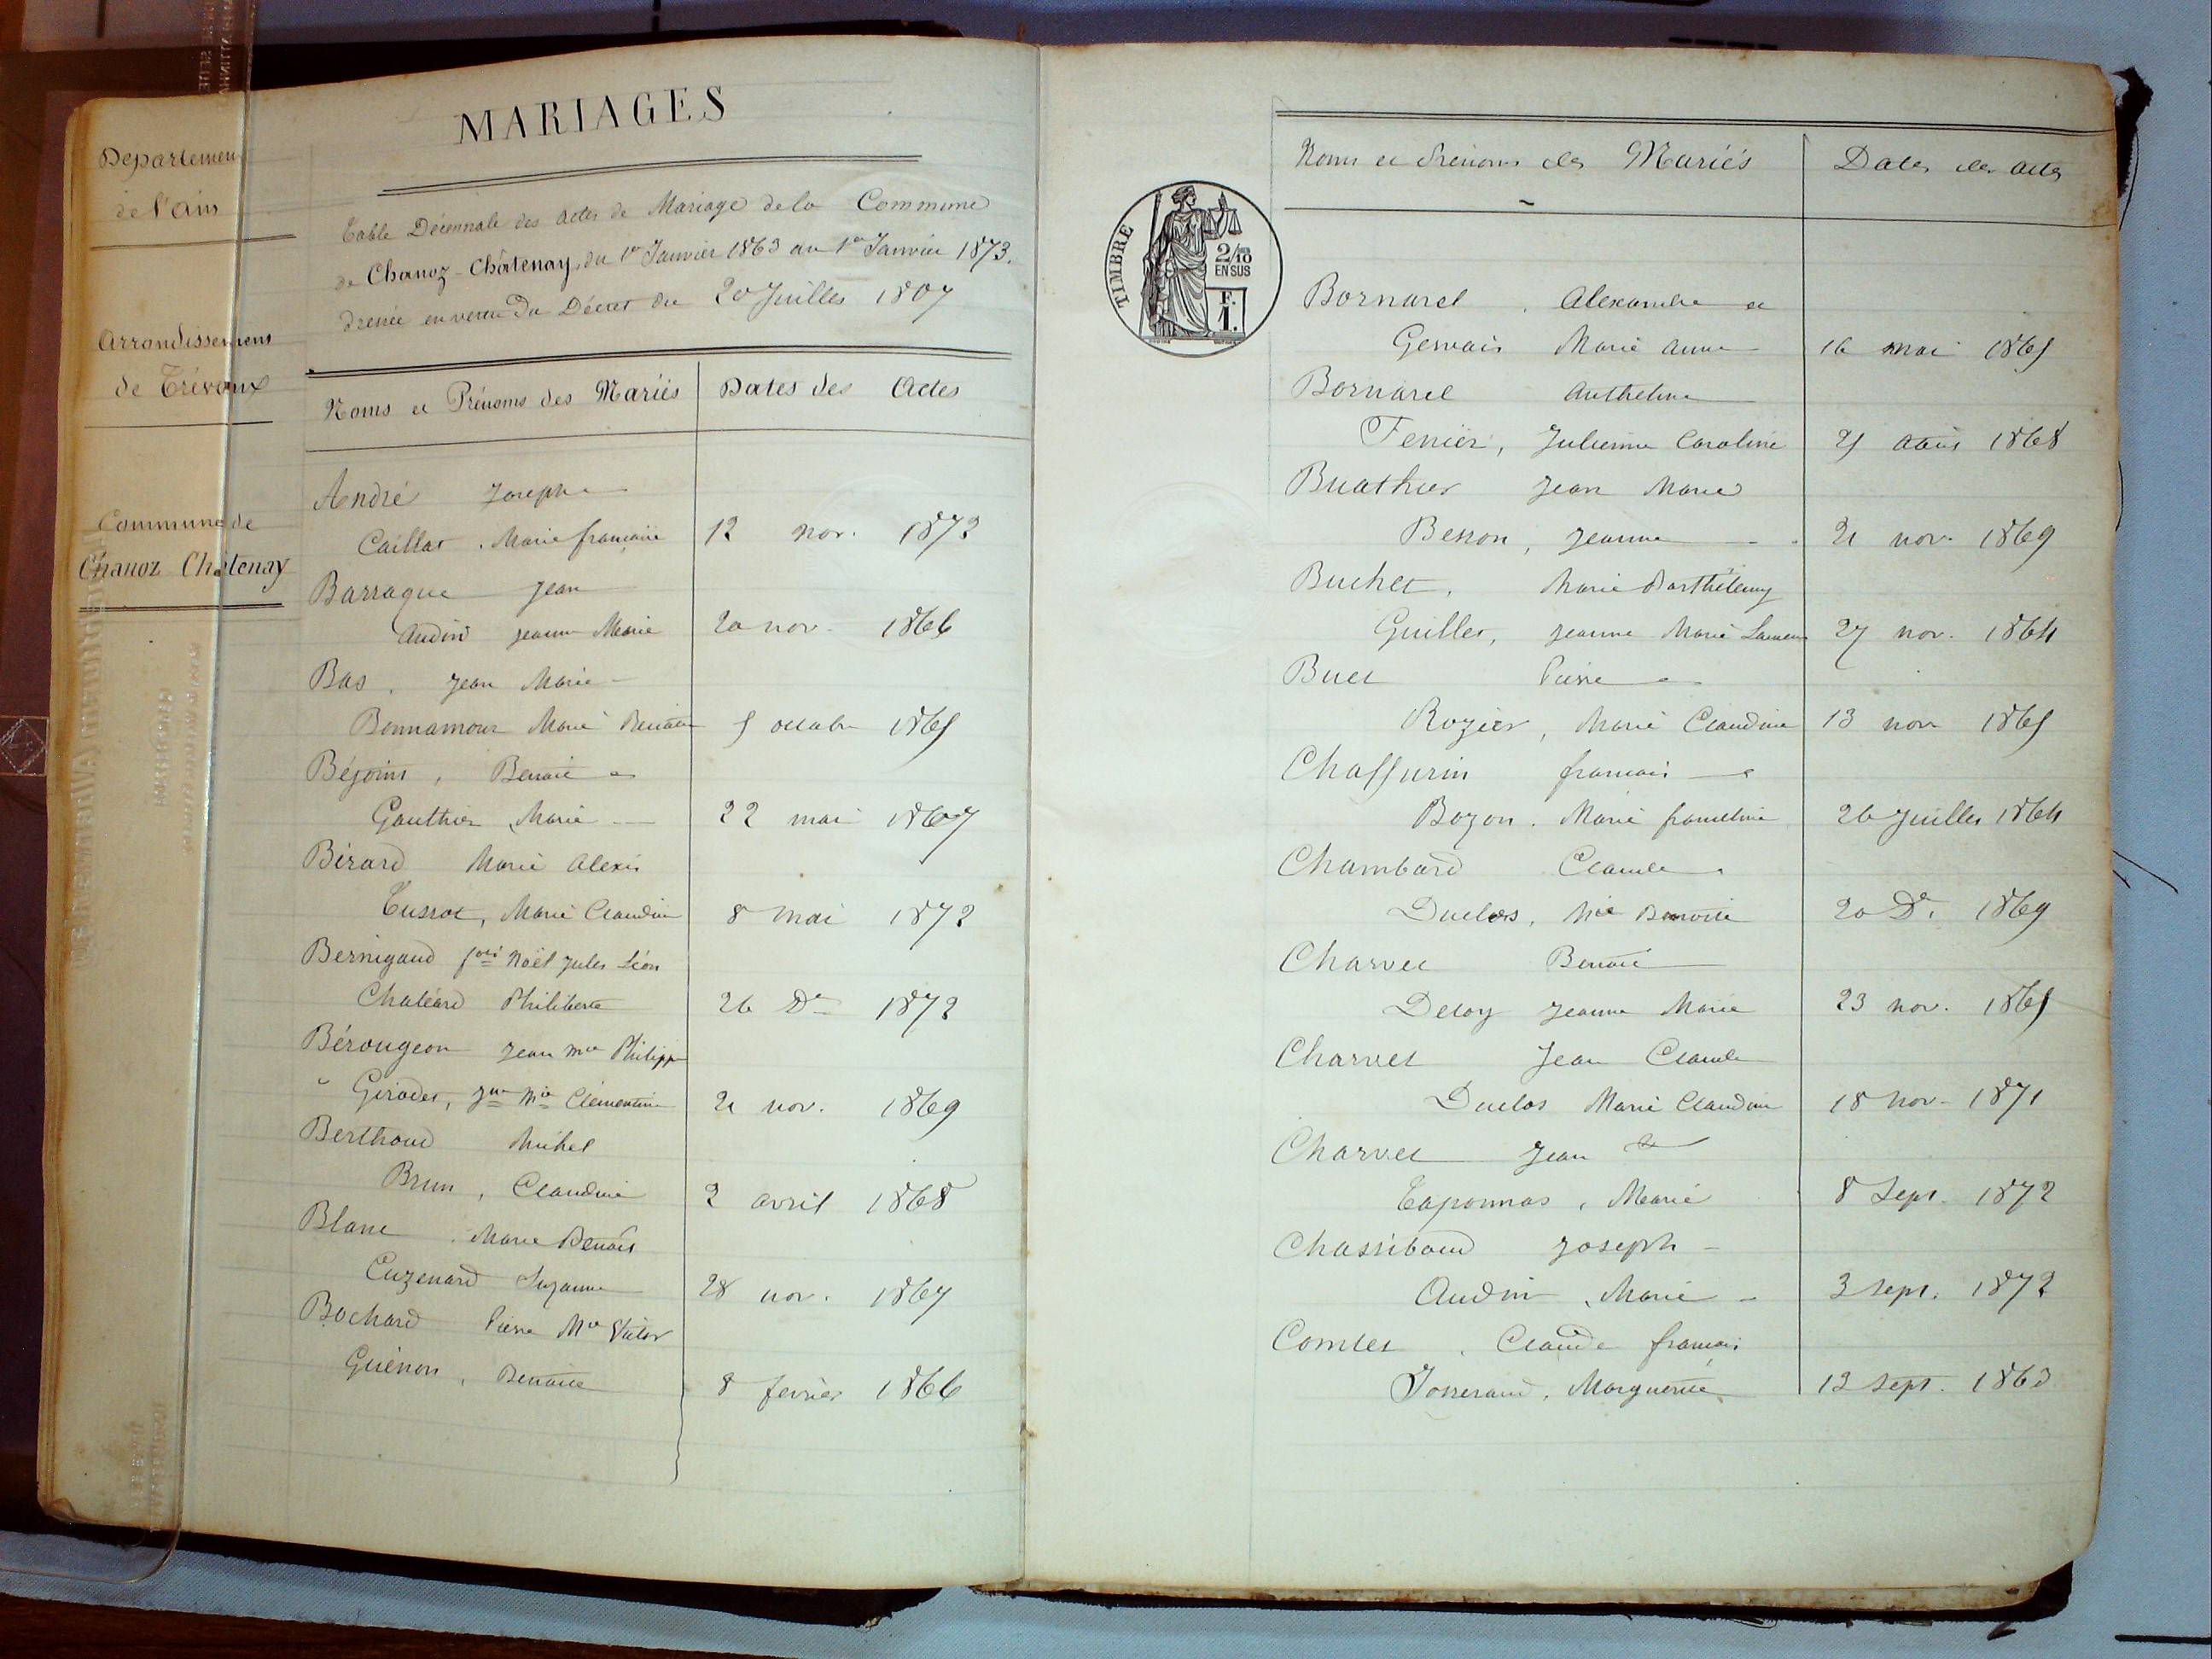 MARIAGES
Departement
de l'Ain
Arrondissement
de Trévoux
Commune de
Chanoz Châtenay
Table Décennale des Actes de Mariage de la Commune
de Chanoz-Châtenay, du 1er Janvier 1863 au 1er Janvier 1873.
Dressée en vertu du Décret du 20 Juillet 1807
Noms et Prénoms des Mariés Dates des Actes
André Joseph
Caillat, Marie françoise 12 nov. 1872
Barraque Jean
Audin Jeanne Marie 20 nov. 1866
Bas, Jean Marie
Bonnamour Marie Benoite 5 octobre 1865
Béjoint, Benoit
Gauthier, Marie 22 mai 1867
Bérard Marie Alexis
Tussot, Marie Claudine 8 mai 1872
Bernigaud Noël Jules Léon
Chaléard Philiberte 26 Dre 1872
Bérougeon Jean Mie Philippe
Girodet, Jne Mie Clémentine 21 nov. 1869
Berthoud Michel
Brun, Claudine 2 avril 1868
Blanc Marie Benoît
Cuzenard Suzanne 28 nov. 1867
Bochard Pierre Mie Victor
Guénon, Benoite 8 fevrier 1866
TIMBRE
2/10
EN SUS
F.
1.
Noms et Prénoms des Mariés Dates des Actes
Bornarel, Alexandre et
Gervais Marie Anne 16 mai 1865
Bornarel Anthelme
Ferrier, Julienne Caroline 25 Août 1868
Buathier Jean Marie
Besson, Jeanne 21 nov. 1869
Buchet, Marie Barthélemy
Guillet, Jeanne Marie 27 nov. 1864
Buet Pierre
Rozier, Marie Claudine 13 nov 1865
Chaffurin françois
Bozon, Marie franceline 26 Juillet 1864
Chambard Claude
Duclos, Mie Benoite 20 Dr. 1869
Charvet Benoit
Decoy Jeanne Marie 23 nov. 1865
Charvet Jean Claude
Duclos Marie Claudine 18 nov. 1871
Charvet Jean
Taponnas, Marie 8 Sept. 1872
Chassiboud Joseph
Audin, Marie 3 sept. 1872
Comtet, Claude françois
Josserand, Marguerite 12 sept. 1863